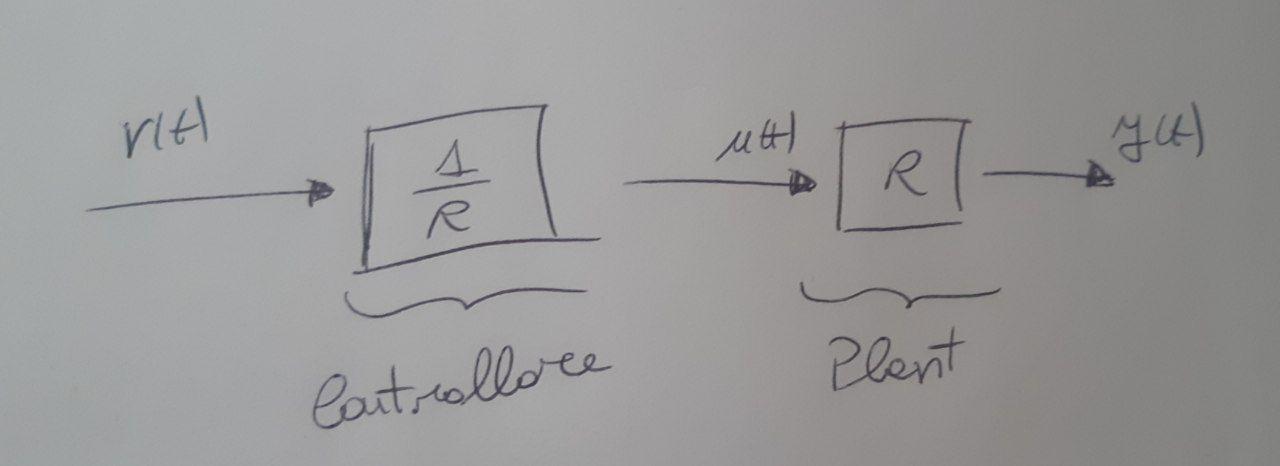 r(t)
1/R
u(t)
R
y(t)
Controllore
Plant